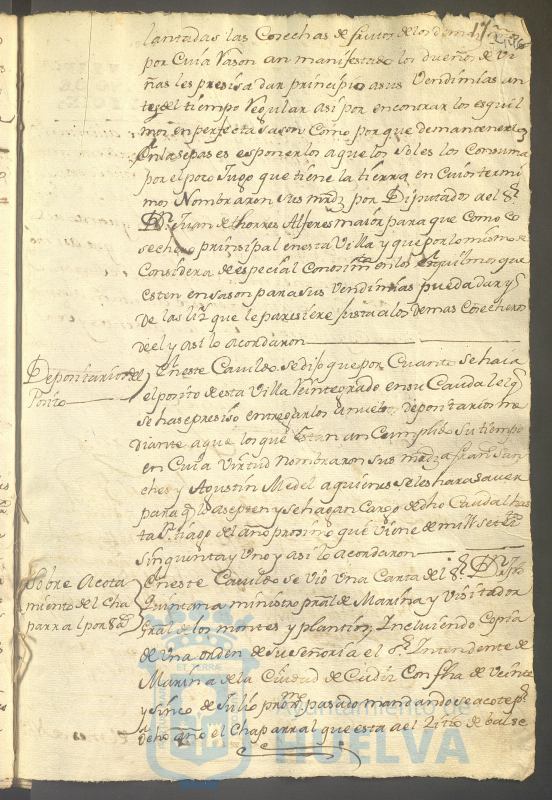 lantadas las Cosechas de frutos de los demas
por Cuia Rason an manifestado los dueños de Vi
ñas les presisa dar principio a sus Vendimias an
tes del tiempo Regular asi por encontrar los esquil
mos en perfecta sason Como por que de mantenerlos
en las sepas es esponerlos a que los Soles los Consuma
por el poco Jugo que tiene la tierra, en Cuios termi
nos Nombraron sus mrds por Diputado a el Sr
Dn Juan de thorres Alferes maior para que Como co
sechero prinsipal en esta Villa y que por lo mismo se
Considera de especial Conosimto en los esquilmos que
esten en sason para sus Vendimias pueda dar y
de las liz que le paresiere justa a los demas Cosecheros
de el y asi lo acordaron
Depositarios del
Posito
En este Cavildo se dijo que por Cuanto se haia
el posito de esta Villa Reintegrado en su Caudal y
se hase presiso entregarlos a nuevos depositarios me
diante a que los que estan an Cumplido su tiempo
en Cuia Virtud nombraron sus mrds a Fran San
ches y Agustin Medel a quienes se les hara saver
para q lo asepten y se hagan Cargo de dho Caudal has
ta Santiago del año procimo que viene de mill setts
sinquenta y Uno y asi lo acordaron
Sobre Acota
miento del Cha
parral por 8 as
En este Cavildo se vio Una Carta del Sr Dn
Quintana ministro pral de Marina y Visitador
gral de los montes y plantios, Incluiendo Copia
de Una orden de su señoria el Sr Intendente de
Marina de la Ciudad de Cadiz Con fha de Veinte
y Sinco de Julio prosmo pasado mandando se acote pr
ocho año el Chaparral que esta a el Sitio de
ET TERRAE
Ayuntamiento de
HUELVA